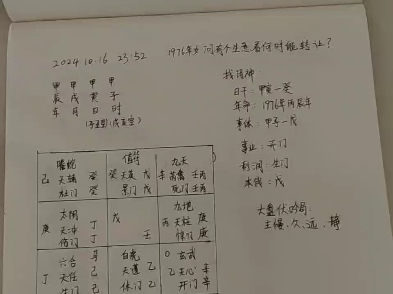 2024 10.16 23:52
1976年女问有个生意看何时能转让?
甲 甲 甲 甲
辰 戌 寅 子
年 月 日 时
找用神
日干:甲寅—癸
年命:1976年丙辰年
事体:甲子—戊
事业:开门
利润:生门
本钱:戊
大盘伏吟局:
主慢、久、远、静
螣蛇 值符 九天
己 天辅 癸 癸 天英 戊 辛 芮禽 壬丙
杜门 癸 景门 戊 死门 壬丙
太阴 戊 九地
庚 天冲 丁 丙 天柱 庚
伤门 丁 壬 惊门 庚
六合 白虎 玄武
丁 天任 己 天蓬 乙 天心 辛
生门 己 休门 乙 开门 辛